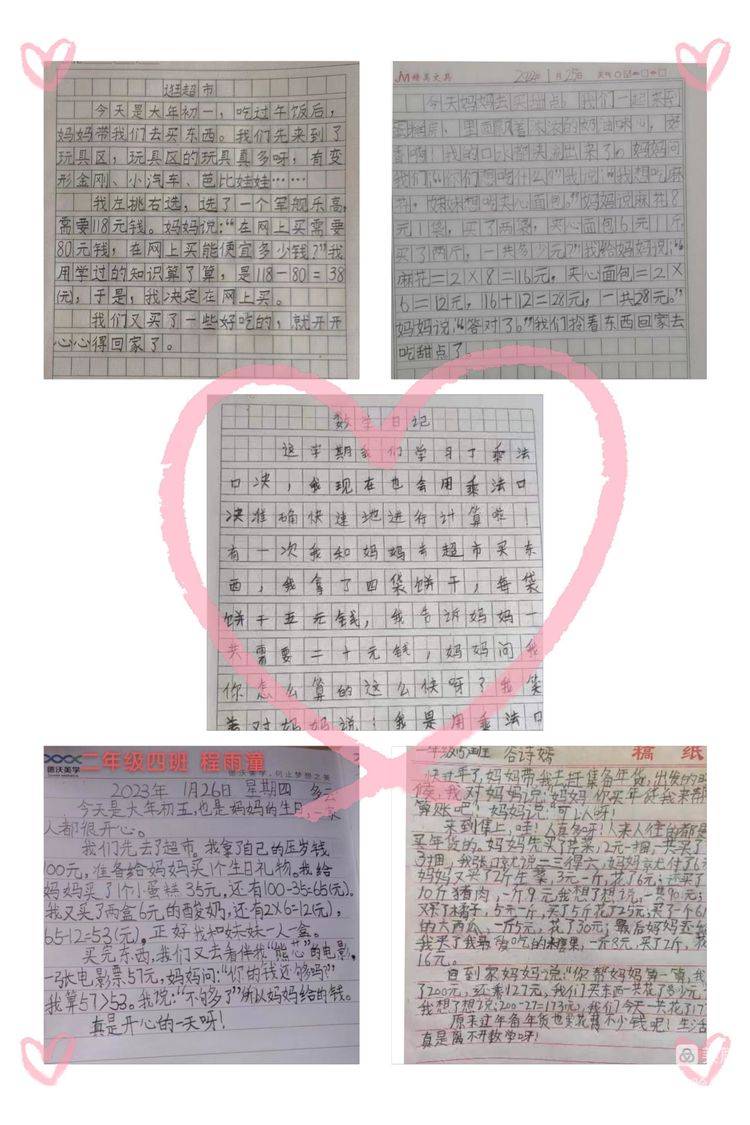 逛超市
今天是大年初一，吃过午饭后，
妈妈带我们去买东西。我们先来到了
玩具区，玩具区的玩具真多呀，有变
形金刚、小汽车、芭比娃娃……
我左挑右选，选了一个军舰乐高，
需要118元钱。妈妈说：“在网上买需要
80元钱，在网上买能便宜多少钱？”我
用学过的知识算了算，是118－80＝38
(元)，于是，我决定在网上买。
我们又买了一些好吃的，就开开
心心得回家了。
晨光文具
2024年1月25日
今天妈妈去买甜点。我们一起来到
香啊！我的口水都快流出来了。妈妈问
我们：“你们想吃什么？”我说：“我想吃麻
花，妹妹想吃夹心面包。”妈妈说麻花8
元1袋，买了两袋，夹心面包6元1斤，
买了两斤，一共多少元？”我给妈妈说：“
麻花＝2×8＝16元，夹心面包＝2×
6＝12元，16＋12＝28元，一共28元。”
妈妈说：“答对了。”我们拎着东西回家去
吃甜点了。
数学日记
这学期我们学习了乘法
口决，我现在也会用乘法口
决准确快速地进行计算啦！
有一次我和妈妈去超市买东
西，我拿了四袋饼干，每袋
饼干五元钱，我告诉妈妈一
共需要二十元钱，妈妈问我
你怎么算的这么快呀？我笑
着对妈妈说！我是用乘法口
德沃美学 二年级四班 程雨潼
德沃美学，创止梦想之美
2023年 1月26日 星期四 多云
今天是大年初五，也是妈妈的生日，一家
人都很开心。
我们先去了超市。我拿自己的压岁钱
100元，准备给妈妈买1个生日礼物。我给
妈妈买了1个小蛋糕35元，还有100-35=65(元)。
我又买了两盒6元的酸奶，还有2×6=12(元)，
65-12=53(元)。正好我和妹妹一人一盒。
买完东西，我们又去看伴我“熊芯”的电影，
一张电影票57元，妈妈问：“你的钱还够吗？”
我算57>53。我说：“不够了”所以妈妈给的钱。
真是开心的一天呀！
谷诗嫣 稿纸
快过年了，妈妈带我去赶集备年货，出发的时
候，我对妈妈说：“妈妈你买年货我来帮
算账吧！”妈妈说：“可以呀！”
来到集上，哇！人真多呀！人来人往的都是
买年货的。妈妈先买了芹菜，2元一捆，共买了
3捆，我张口就说二三得六，妈妈就付了6元
妈妈又买了2斤生菜，3元一斤，花了6元；还买了
10斤猪肉，一斤9元，我想了想说，一共90元；
又来了橘子，5元一斤，买了5斤花了25元；买了一个6斤
的大西瓜，一斤5元，花了30元；最后妈妈还给
我买了我最爱吃的水糖果，一斤8元，买了2斤，花
16元。
回到家妈妈说：“你帮妈妈算一算，我
了200元，还剩127元，我们买东西一共花了多少元
我想了想说：200-27=173(元)，我们今天一共花了17
原来过年备年货也要花费不少钱呢！生活
真是离不开数学呀！